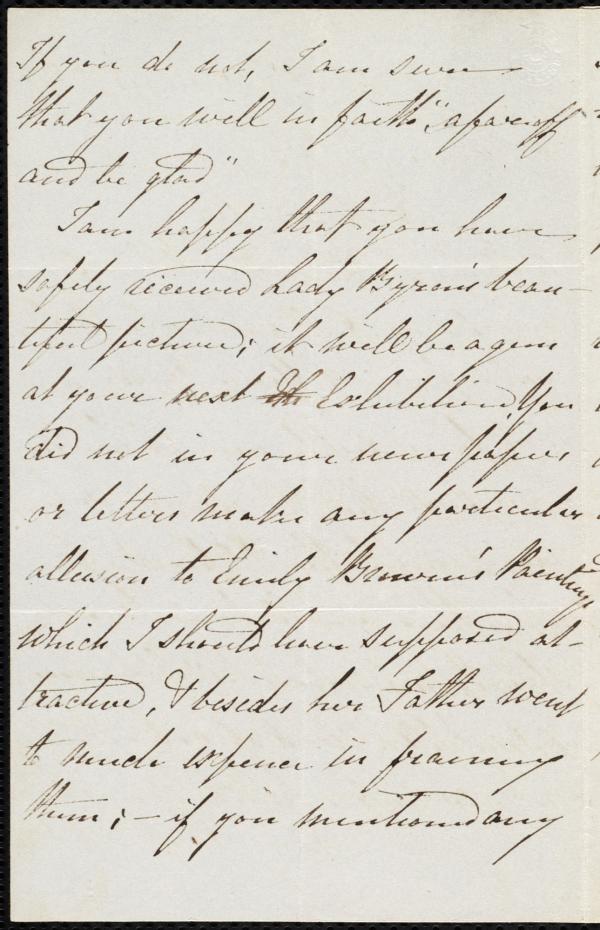 If you do not, I am sure
that you will in faith "afar off
and be glad"
I am happy that you have
safely received Lady Byron's beau-
tiful picture; it will be a gem
at your next Exhibition. You
did not in your newspaper
or letters make any particular
allusion to Emily Brown's Paintings
which I should have supposed at-
tractive, & besides her Father went
to much expence in framing
them; – if you mentioned any